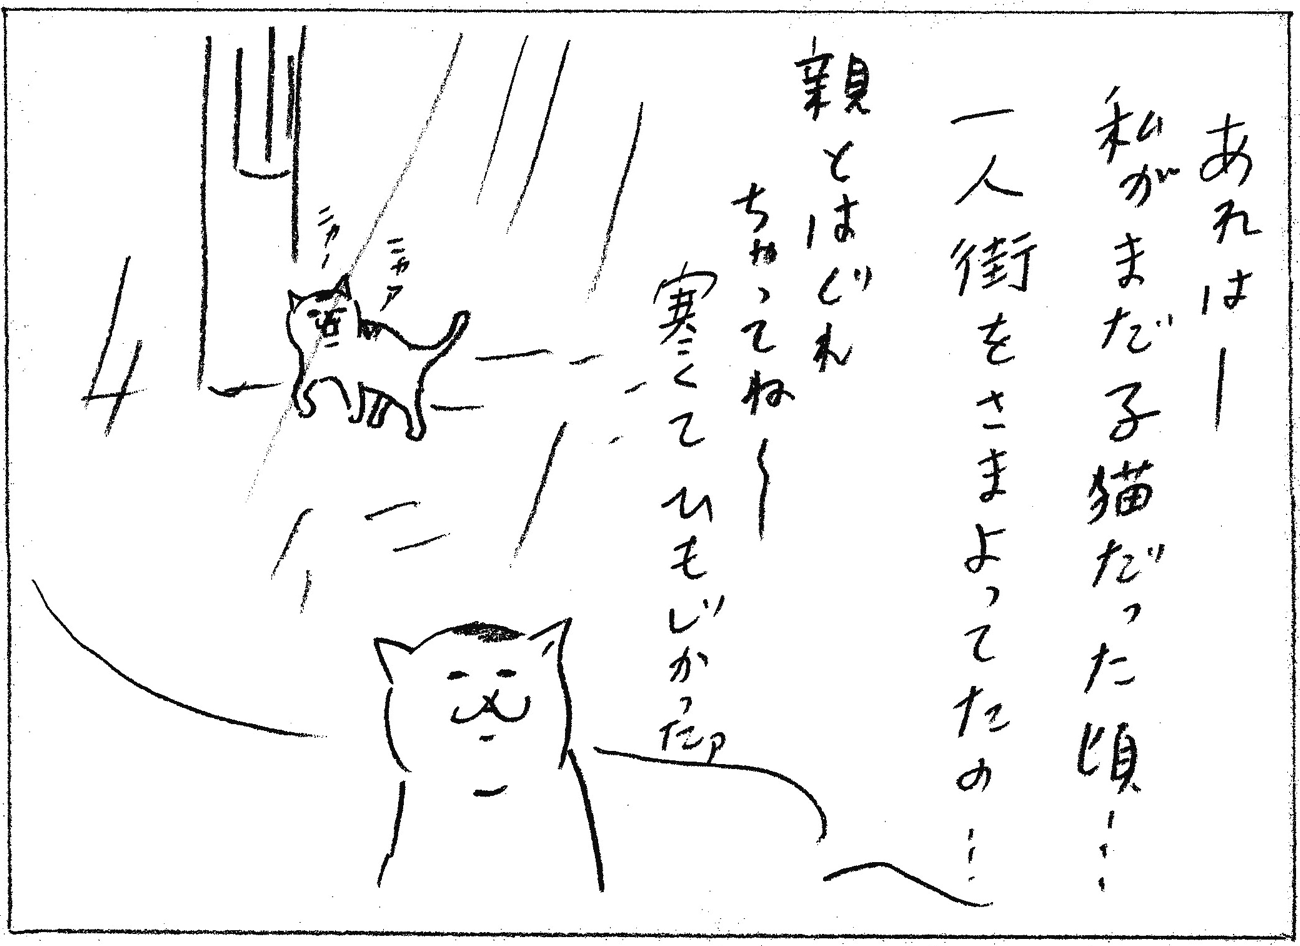 あれはー
私がまだ子猫だった頃…
一人街をさまよってたの…
親とはぐれ
ちゃってね〜
寒くてひもじかったア
ニャア
ニャー